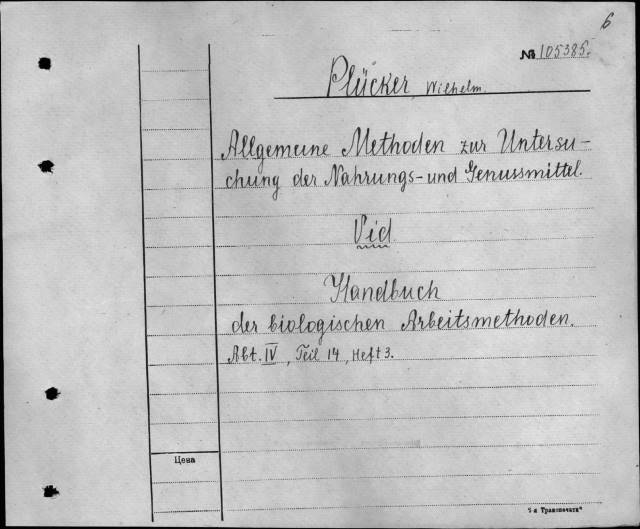 6
№ 105385.
Plücker, Wilhelm.
Allgemeine Methoden zur Untersu-
chung der Nahrungs- und Genussmittel.
Vid
Handbuch
der biologischen Arbeitsmethoden.
Abt. IV, Teil 14, Heft 3.
Цена
"Транспечати"